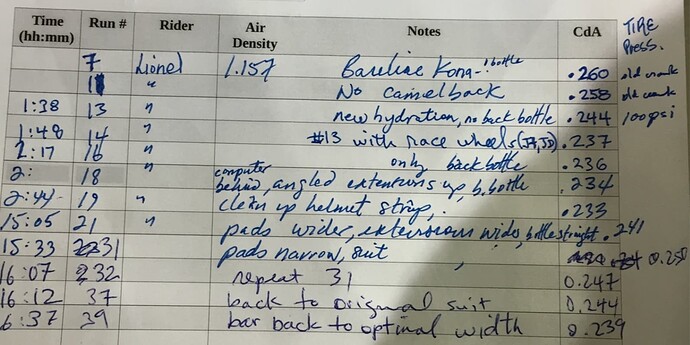 Time (hh:mm) Run # Rider Air Density Notes CdA TIRE Press.
7 Lionel 1.157 Bareline Kona - 1 bottle .260 old crank
11 " No camelback .258 old crank
1:38 13 " new hydration, no back bottle .244 100psi
1:48 14 " #13 with race wheels .237
2:17 16 " only back bottle .236
2: 18 computer behind, angled extentions up, b. bottle .234
2:44 19 " clean up helmet strap, .233
15:05 21 " pads wider, extensions wider, bottle straight .241
15:33 31 pads narrow, suit 0.250
16:07 32 repeat 31 0.247
16:12 37 back to original suit 0.244
6:37 39 bar back to optimal width 0.239